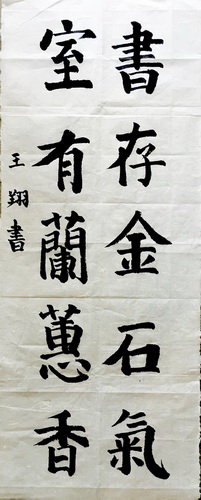 書存金石氣
室有蘭蕙香
王翔書